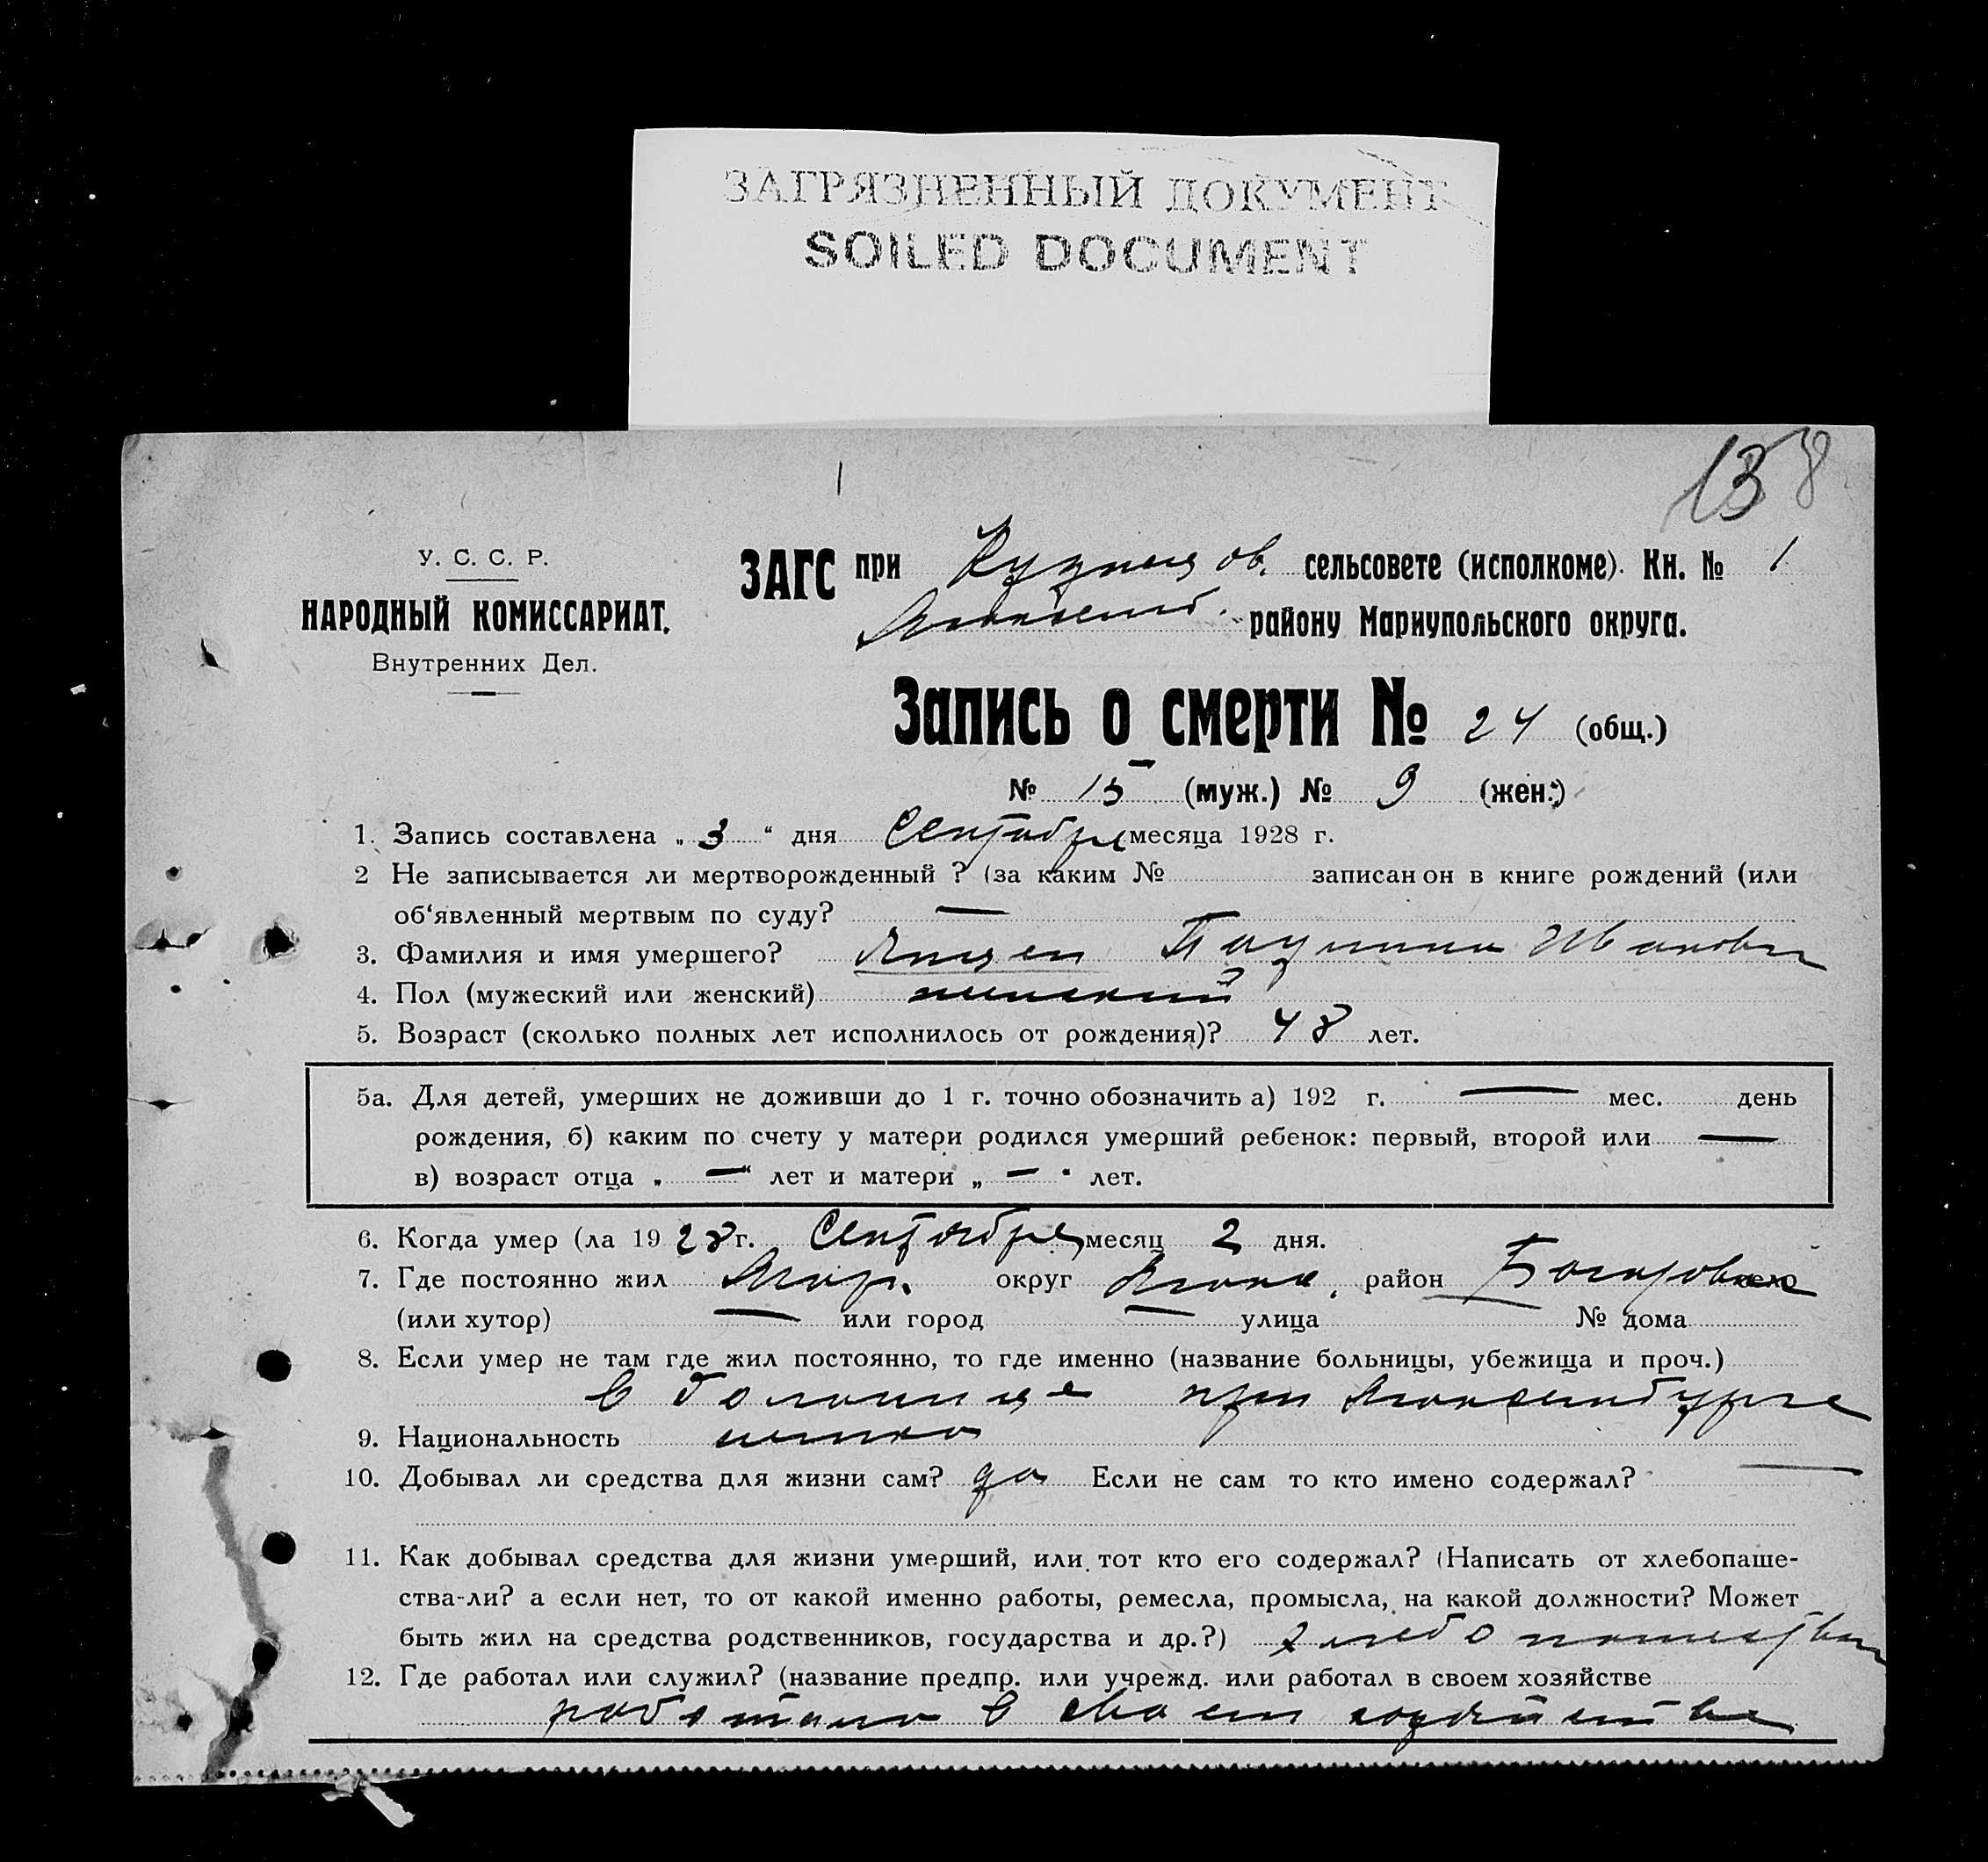 ЗАГРЯЗНЕННЫЙ ДОКУМЕНТ
SOILED DOCUMENT
138
У. С. С. Р.
НАРОДНЫЙ КОМИССАРИАТ.
Внутренних Дел.
ЗАГС при Кузнецов. сельсовете (исполкоме). Кн. № 1
району Мариупольского округа.
Запись о смерти № 24 (общ.)
№ 15 (муж.) № 9 (жен.)
1. Запись составлена „ 3 “ дня Сентября месяца 1928 г.
2 Не записывается ли мертворожденный ? (за каким № записан он в книге рождений (или
об‘явленный мертвым по суду? —
3. Фамилия и имя умершего? Янцен Паулина Ивановна
4. Пол (мужеский или женский) женский
5. Возраст (сколько полных лет исполнилось от рождения)? 48 лет.
5а. Для детей, умерших не доживши до 1 г. точно обозначить а) 192 г. — мес. день
рождения, б) каким по счету у матери родился умерший ребенок: первый, второй или —
в) возраст отца „ — “ лет и матери „ — “ лет.
6. Когда умер (ла 1928 г. Сентября месяц 2 дня.
7. Где постоянно жил Мар. округ Люкс. район село
(или хутор) — или город — улица № дома
8. Если умер не там где жил постоянно, то где именно (название больницы, убежища и проч.)
в больнице при Люксембурге
9. Национальность немка
10. Добывал ли средства для жизни сам? да Если не сам то кто имено содержал? —
11. Как добывал средства для жизни умерший, или тот кто его содержал? (Написать от хлебопаше-
ства-ли? а если нет, то от какой именно работы, ремесла, промысла, на какой должности? Может
быть жил на средства родственников, государства и др.?) хлебопашества
12. Где работал или служил? (название предпр. или учрежд. или работал в своем хозяйстве
работала в своем хозяйстве